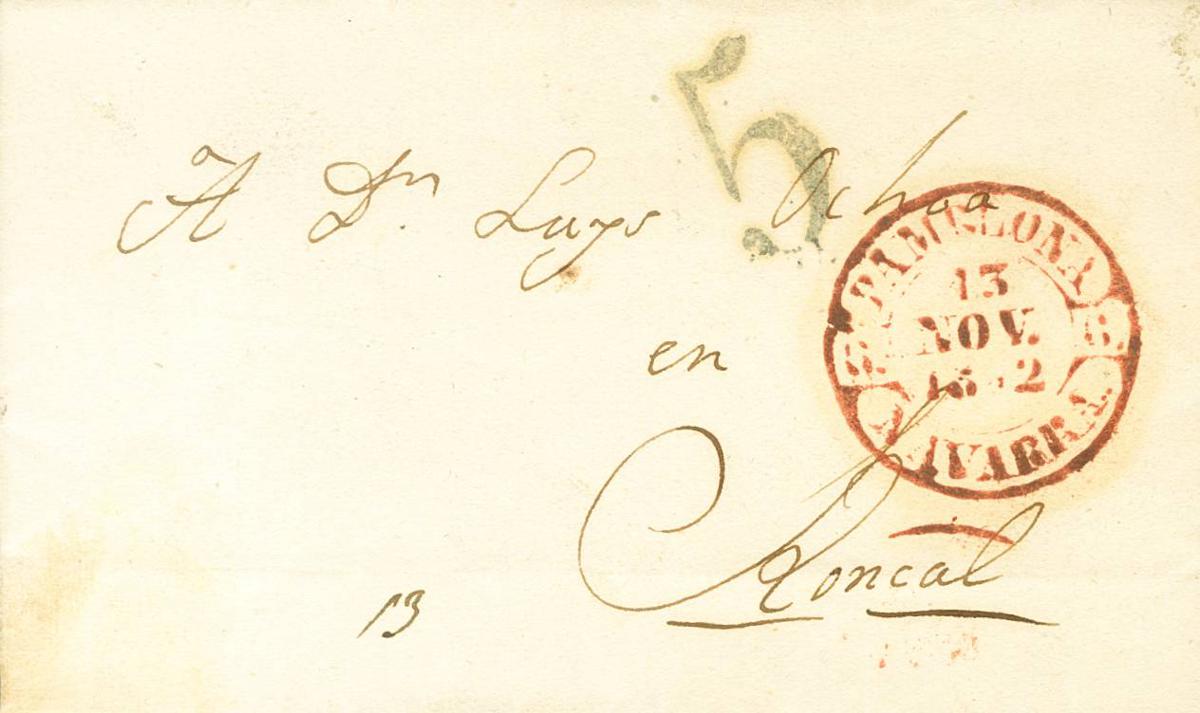 5
A Dn. Luys Ochoa
en
Roncal
13
PAMPLONA
13
NOV.
1842
NAVARRA